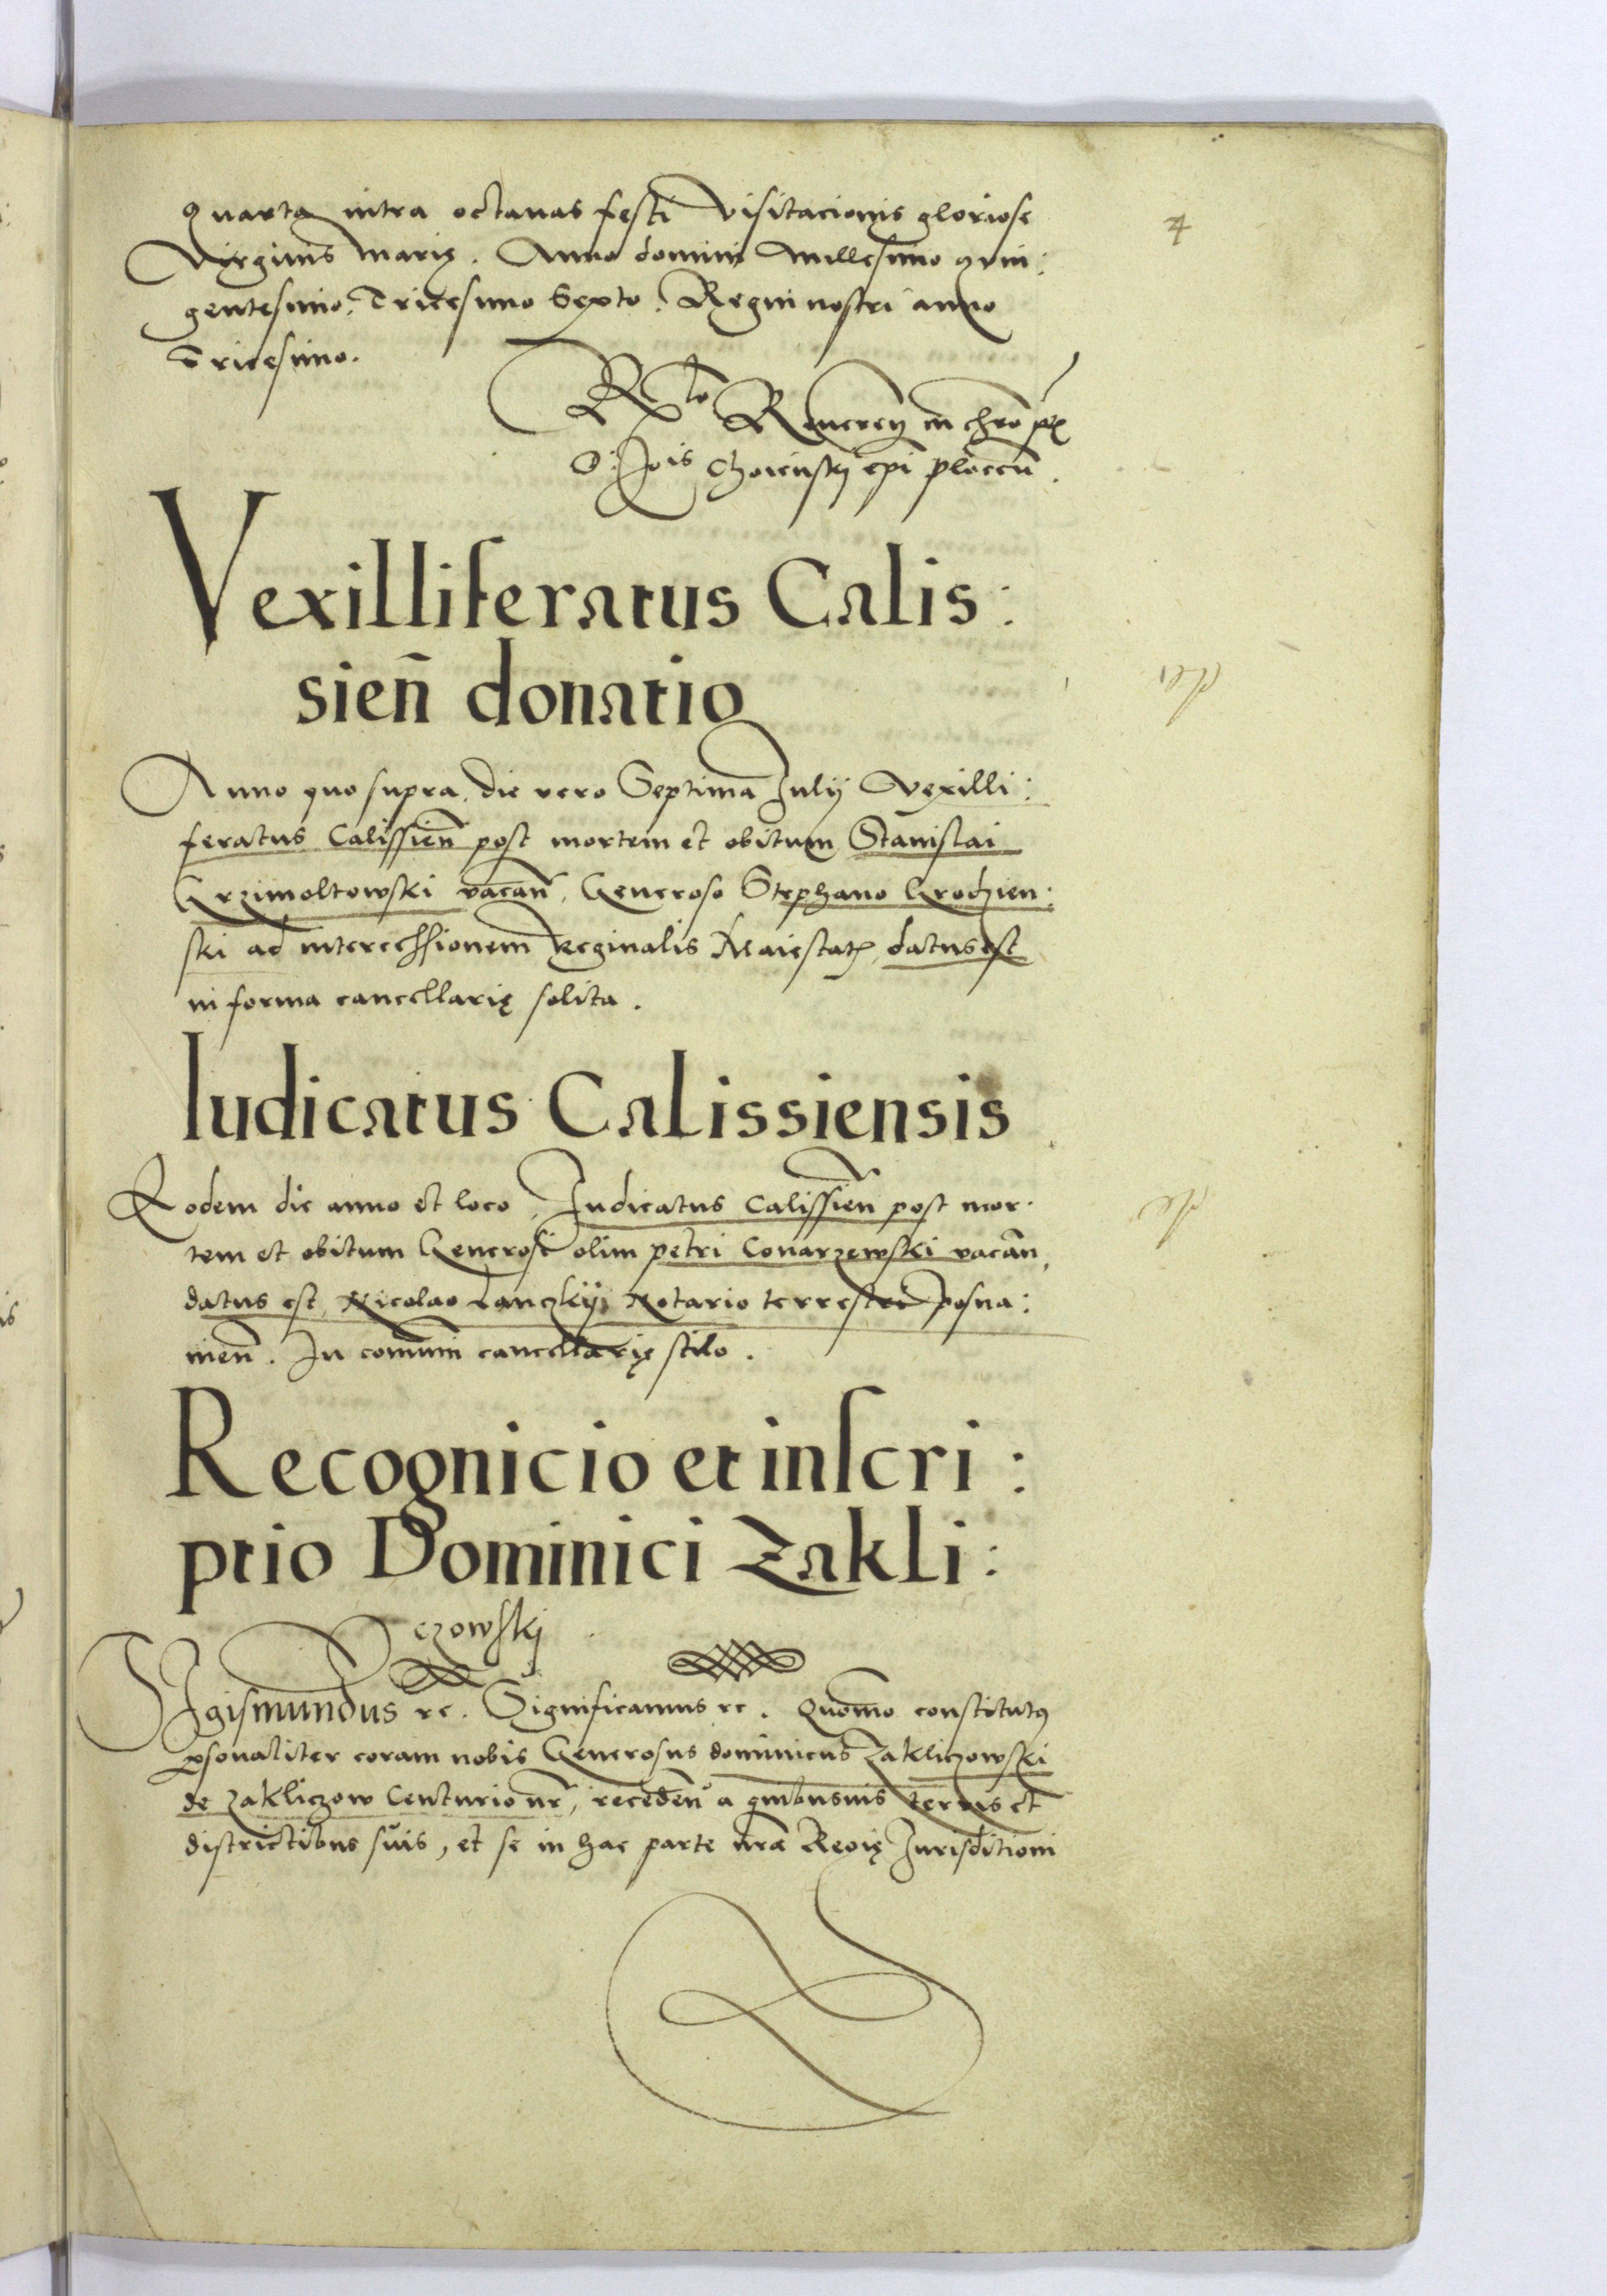 4
quarta intra octauas festi visitacionis gloriose
Virginis Marię. Anno domini Millesimo quin:
gentesimo. Tricesimo Sexto. Regni nostri anno
Tricesimo.
Rlo Reuerendi in chro pris
D: Jois Choiensky epi plocen̄.
Vexilliferatus Calis:
sien̄ donatio
Anno quo supra, die vero Septima Julij Vexilli:
feratus Calissien̄ post mortem et obitum Stanislai
Grzimoltowski vacan̄, Generoso Stephano Grodzien:
ski ad intercessionem Reginalis Maiestatis, datus est
in forma cancellarię solita.
Iudicatus Calissiensis
Eodem die anno et loco, Judicatus Calissien̄ post mor
tem et obitum Generosi olim petri Conarzewski vacan̄,
datus est Nicolao Lanczkij Notario terrestri posna:
nien̄. In comuni cancellarię stilo.
Recognicio et inscri:
ptio Dominici Zakli:
czowskj
Sigismundus rc. Significamus rc. Quomo constitutus
psonaliter coram nobis Generosus dominicus Zakliczowski
de Zakliczow Centurio nr̄, receden̄ a quibusuis terris et
districtibus suis, et se in hac parte nr̄æ Regię Jurisditioni